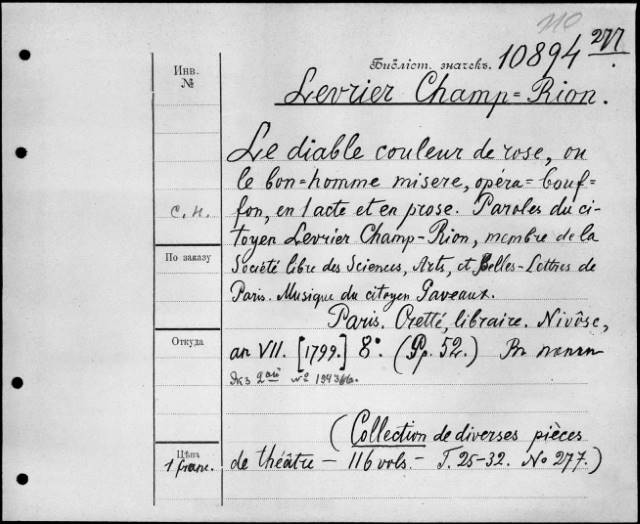 210
Инв.
№
Библіот. значекъ. 10894 277.
Levrier Champ=Rion.
Le diable couleur de rose, ou
le bon=homme misere, opéra=bouf=
c. н.
fon, en 1 acte et en prose. Paroles du ci-
toyen Levrier Champ-Rion, membre de la
По заказу
Société libre des Sciences, Arts, et Belles-Lettres de
Paris. Musique du citoyen Gaveaux.
Paris. Cretté, libraire. Nivôse,
Откуда
an VII. [1799.] 8º. (Pp. 52.)
(Collection de diverses pièces
Цѣнъ
1 franc.
de théâtre — 116 vols. — T. 25-32. No 277.)